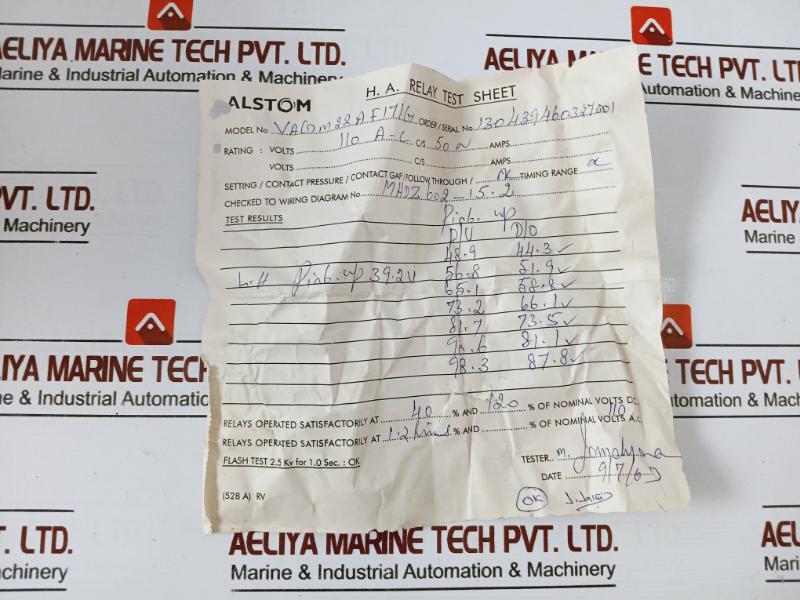 AELIYA MARINE TECH PVT. LTD.
Marine & Industrial Automation & Machinery
AELIYA MARINE TECH PVT. LTD.
Marine & Industrial Automation & Machinery
PVT. LTD.
& Machinery
AELIYA
Marine &
AELIYA MARINE TECH
Marine & Industrial Automation
TECH PVT. LTD.
Automation & Machinery
AELIYA MARINE TECH PVT. LTD.
Marine & Industrial Automation & Machinery
T. LTD.
chinery
AELIYA MAR
Marine & Industrial
ALSTOM
H. A. RELAY TEST SHEET
MODEL No ORDER / SERIAL No. 130439460327001
RATING : VOLTS 110 A-C C/S 50 AMPS.
VOLTS C/S AMPS.
SETTING / CONTACT PRESSURE / CONTACT GAP/FOLLOW THROUGH / OK TIMING RANGE
CHECKED TO WIRING DIAGRAM No.
TEST RESULTS
Pick. up
D/U D/O
48.9 44.3 ✓
56.8 51.9 ✓
Pick. up 39.2V
65.1 58.8 ✓
73.2 66.1 ✓
81.7 73.5 ✓
90.6 81.1 ✓
98.3 87.8 ✓
RELAYS OPERATED SATISFACTORILY AT 40 % AND 120 % OF NOMINAL VOLTS D.C.
RELAYS OPERATED SATISFACTORILY AT % AND % OF NOMINAL VOLTS A.C. 110
FLASH TEST 2.5 Kv for 1.0 Sec. : OK
TESTER M.
DATE 9/7/03
(528 A) RV
OK